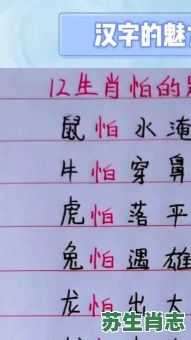 汉字的魅
12生肖怕的
鼠怕水淹
牛怕穿鼻
虎怕落平
兔怕遇雄
龙怕出大
苏生肖志